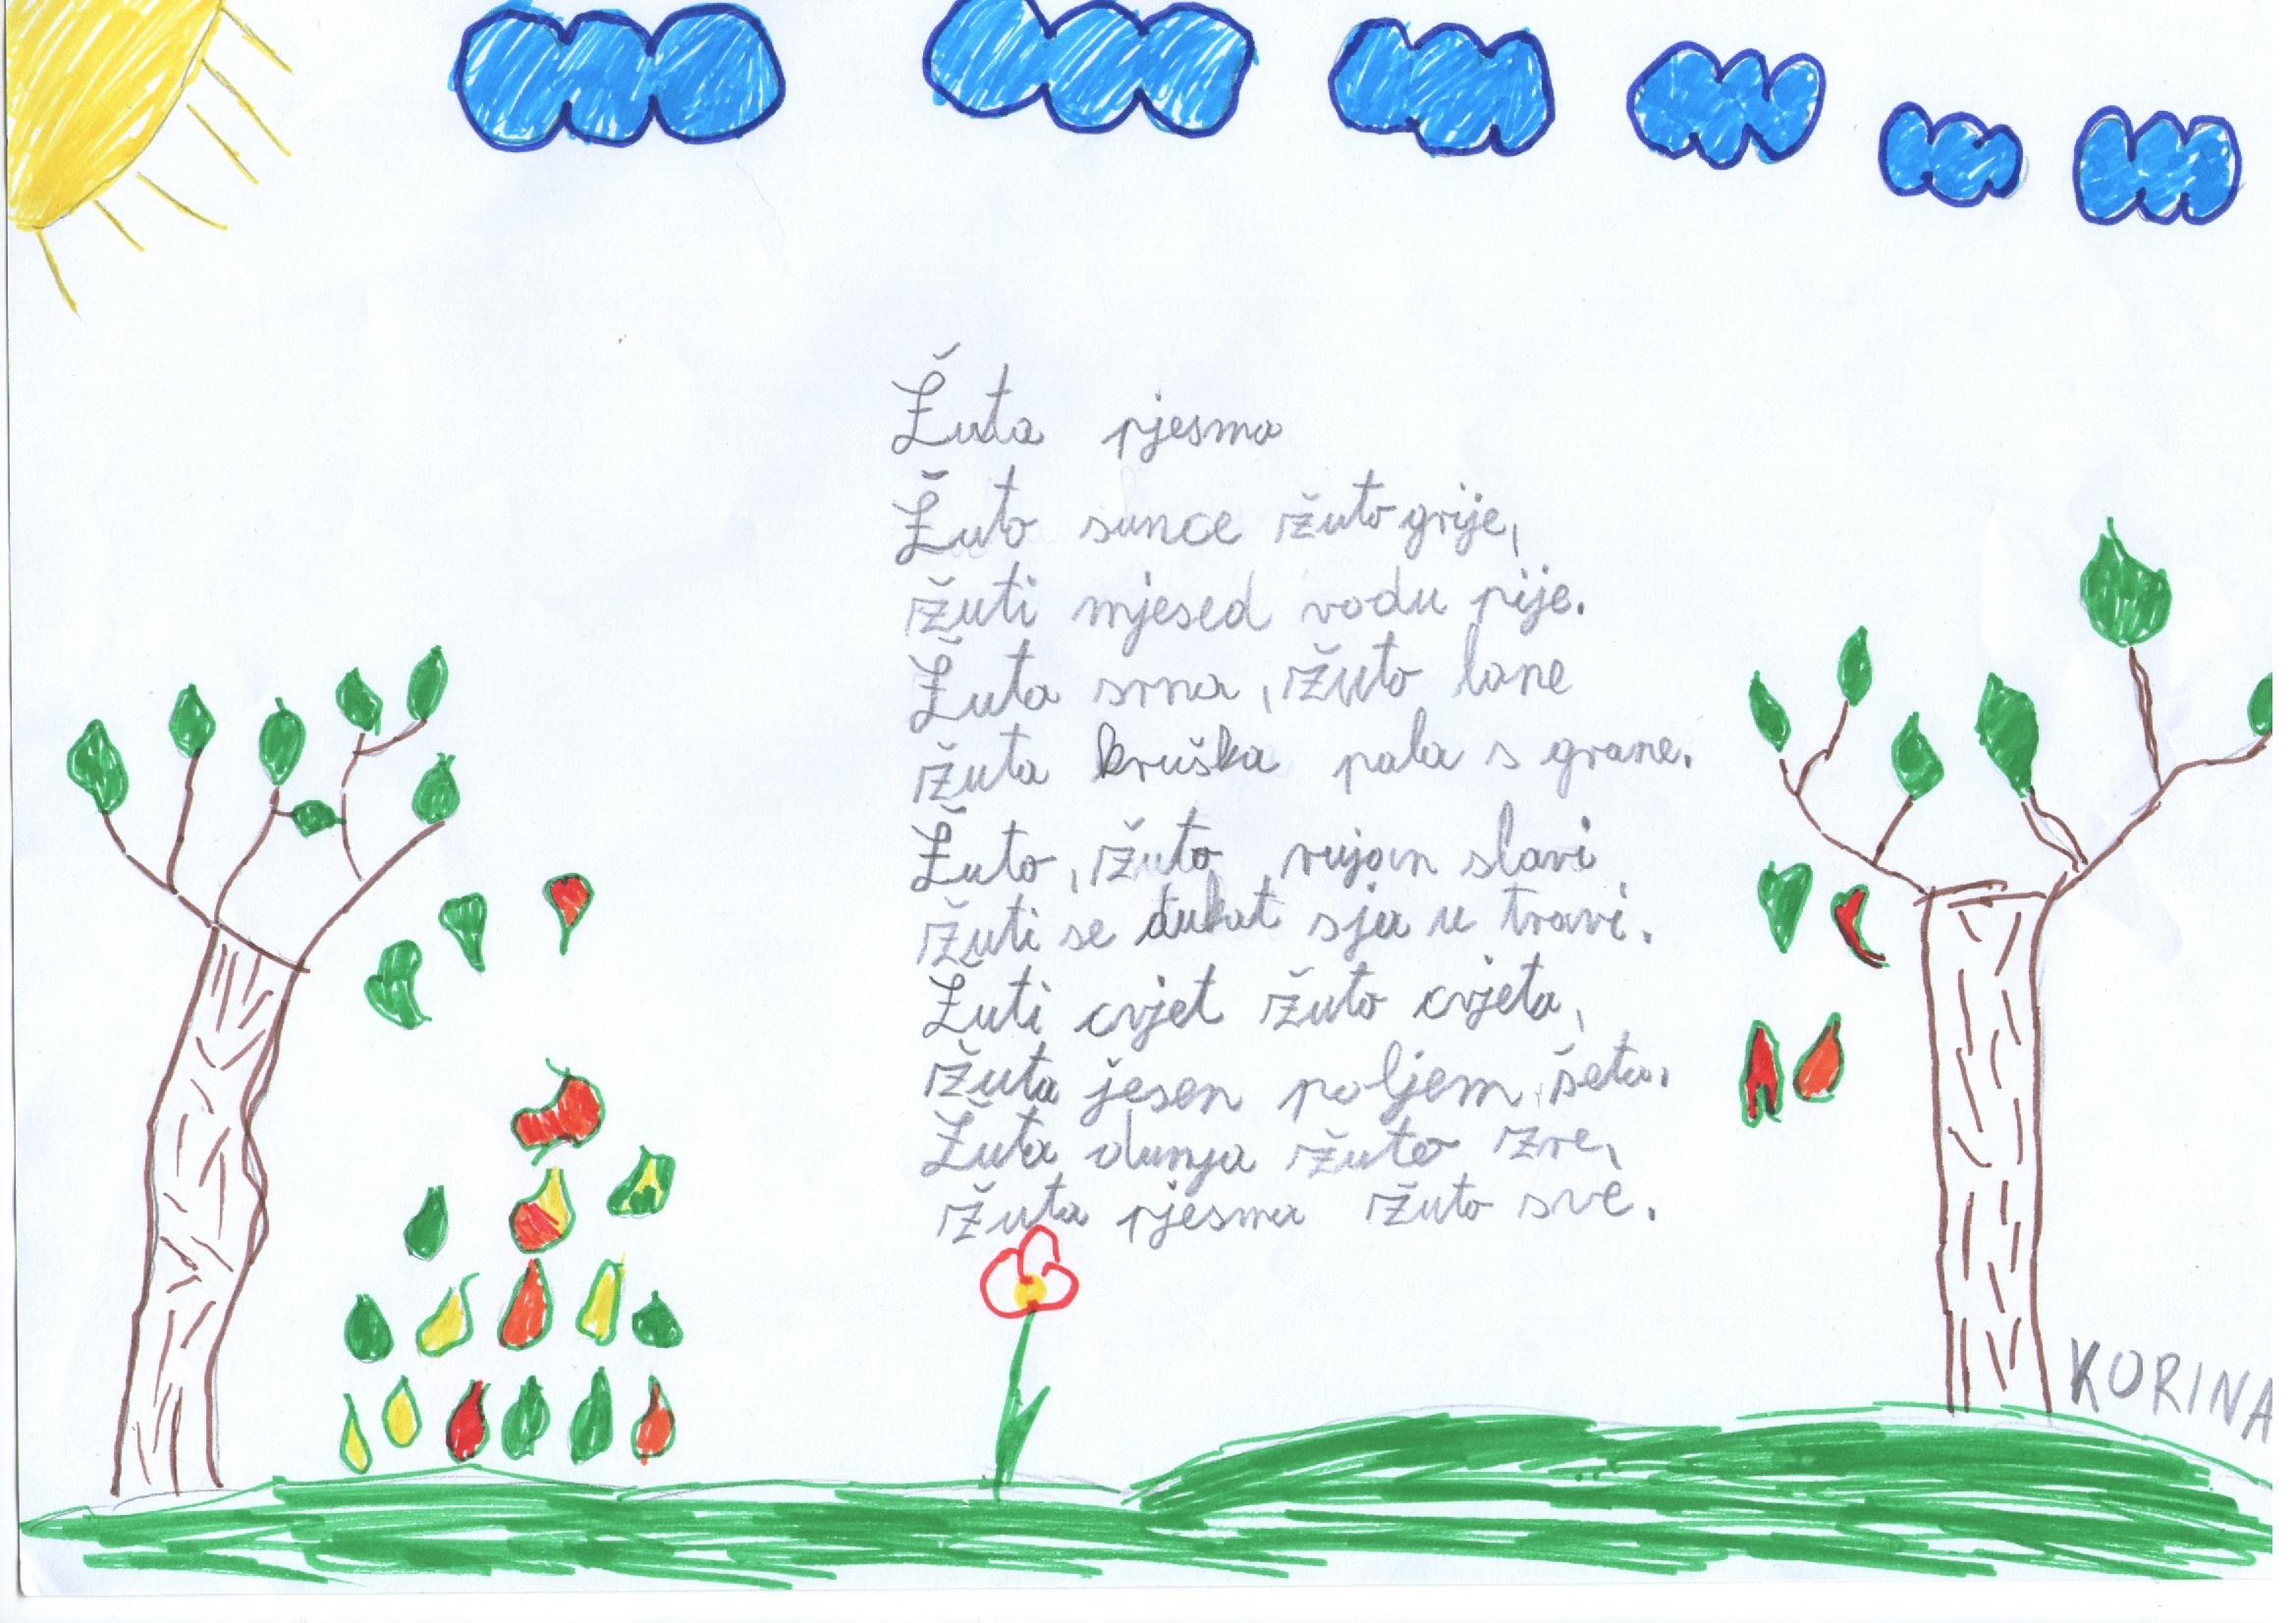 Žuta pjesma
Žuto sunce žuto grije,
žuti mjesed vodu pije.
Žuta srna, žuto lane
žuta kruška pala s grane.
Žuto, žuto, rujan slavi
žuti se dukat sja u travi.
Žuti cvjet žuto cvjeta,
žuta jesen poljem šeta.
Žuta dunja žuto zre,
žuta pjesma žuto sve.
KORINA